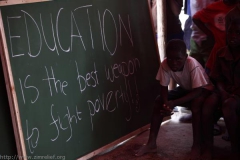 EDUCATION
is the best weapon
to fight poverty!